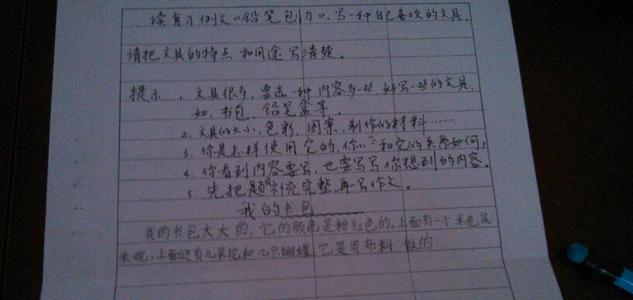 读复习例文《铅笔包刀》.写一种自己喜欢的文具.
请把文具的特点和用途写清楚。
提示 1、文具很多,要选一种内容多一些 好写一些的文具.
如,书包,铅笔盒等.
2、文具的大小,色彩,图案,制作的材料……
3、你是怎样使用它的,你 和它的关系如何?
4、你看到内容要写,也要写写你想到的内容。
5、先把题 补充完整,再写作文。
我的书包
我的书包大大的,它的颜色是粉红色的,上面有一个米老鼠
米妮,上面还有几朵花和几只蝴蝶 它是用布料 做的